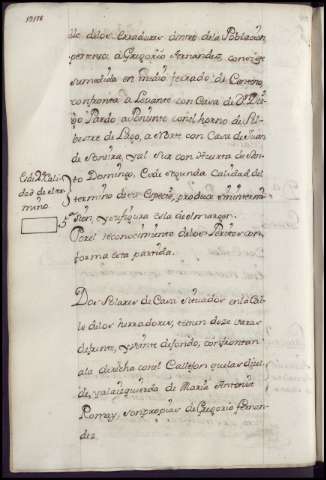 lle delos herradores dentro dela Poblacion
pertenece à Gregorio Fernandez, consiste
su medida en medio ferrado de Centeno
confronta à Levante con Casa de Dn. Die
go Pardo a Poniente con el horno de Sil
bestre de Lago, a Norte con Casa de Juan
de Pereira, y al Sur con Huerta de San
to Domingo, Es de segunda Calidad del
termino de su especie, produce sin intermi
sion, y su figura es la de el margen.
Por el reconocimiento delos Peritos con
forma esta partida.
Es de 2ª Cali
dad de el ter
mino.
Dos Solares de Casa situados en la Ca
lle delos herradores, tienen doze varas
de frente, y veinte de fondo, confrontan
ala derecha con el Callejon que las divi
de, y ala izquierda de Maria Antonia
Romay, son propias de Gregorio fernan
dez